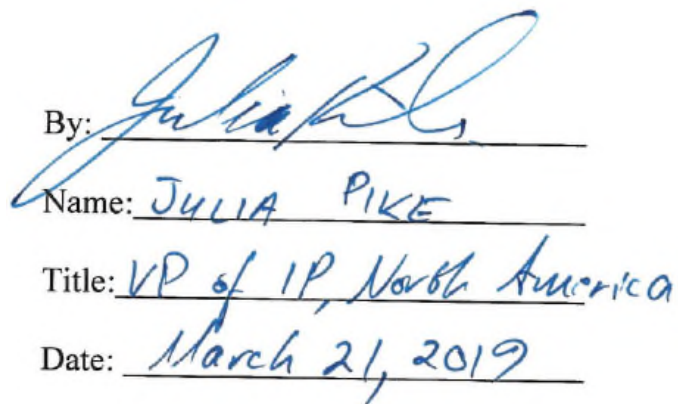 By: Julia
Name: JULIA PIKE
Title: VP of IP, North America
Date: March 21, 2019